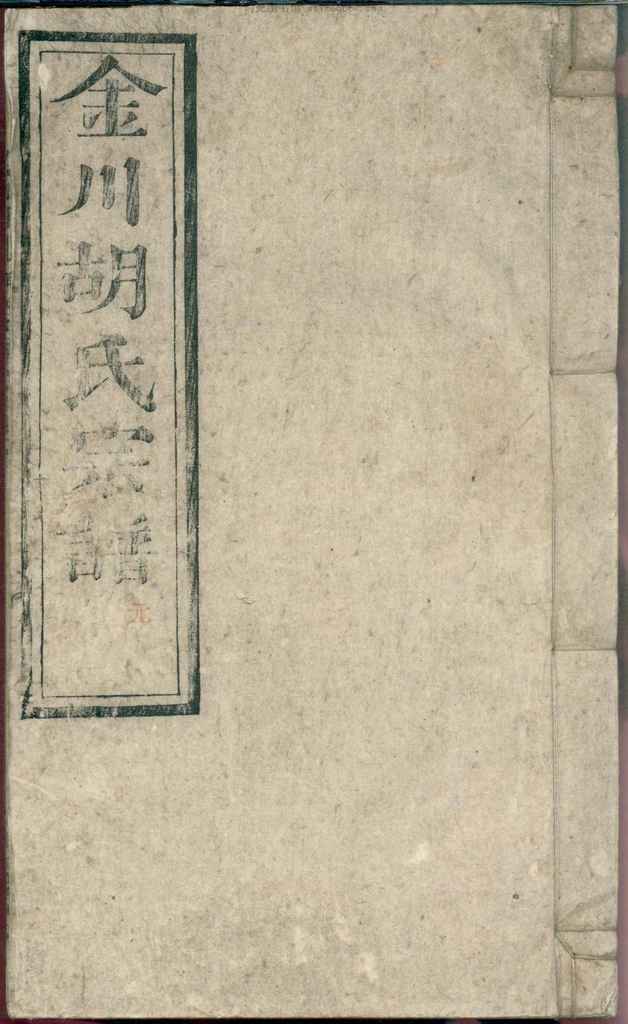 金川胡氏宗譜
元